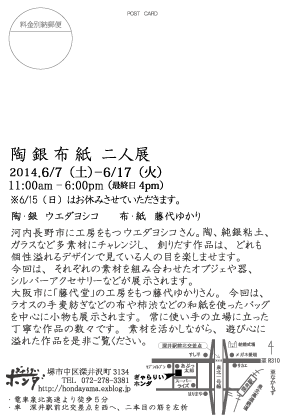 POST CARD
料金別納郵便
陶 銀 布 紙 二人展
2014.6/7（土）–6/17（火）
11:00am – 6:00pm（最終日 4pm）
※6/15（日）はお休みさせていただきます。
陶・銀 ウエダヨシコ 布・紙 藤代ゆかり
河内長野市に工房をもつウエダヨシコさん。陶、純銀粘土、
ガラスなど多素材にチャレンジし、創りだす作品は、どれも
個性溢れるデザインで見ている人の目を楽しませます。
今回は、それぞれの素材を組み合わせたオブジェや器、
シルバーアクセサリーなどが展示されます。
大阪市に「藤代堂」の工房をもつ藤代ゆかりさん。今回は、
ラオスの手麦紡ぎなどの布や柿渋などの和紙を使ったバッグ
を中心に小物も展示されます。常に使い手の立場に立った
丁寧な作品の数々です。素材を活かしながら、遊び心に
溢れた作品を是非ご覧ください。
ぎゃらりい
ホンダ
堺市中区深井沢町3134
TEL 072-278-3381
http://hondayama.oxblog.jp
・電車泉北高速より徒歩5分
・車 深井駅前北交差点を西へ、二本目の筋を左折
深井駅前北交差点
ぎゃらりい
ホンダ
R310